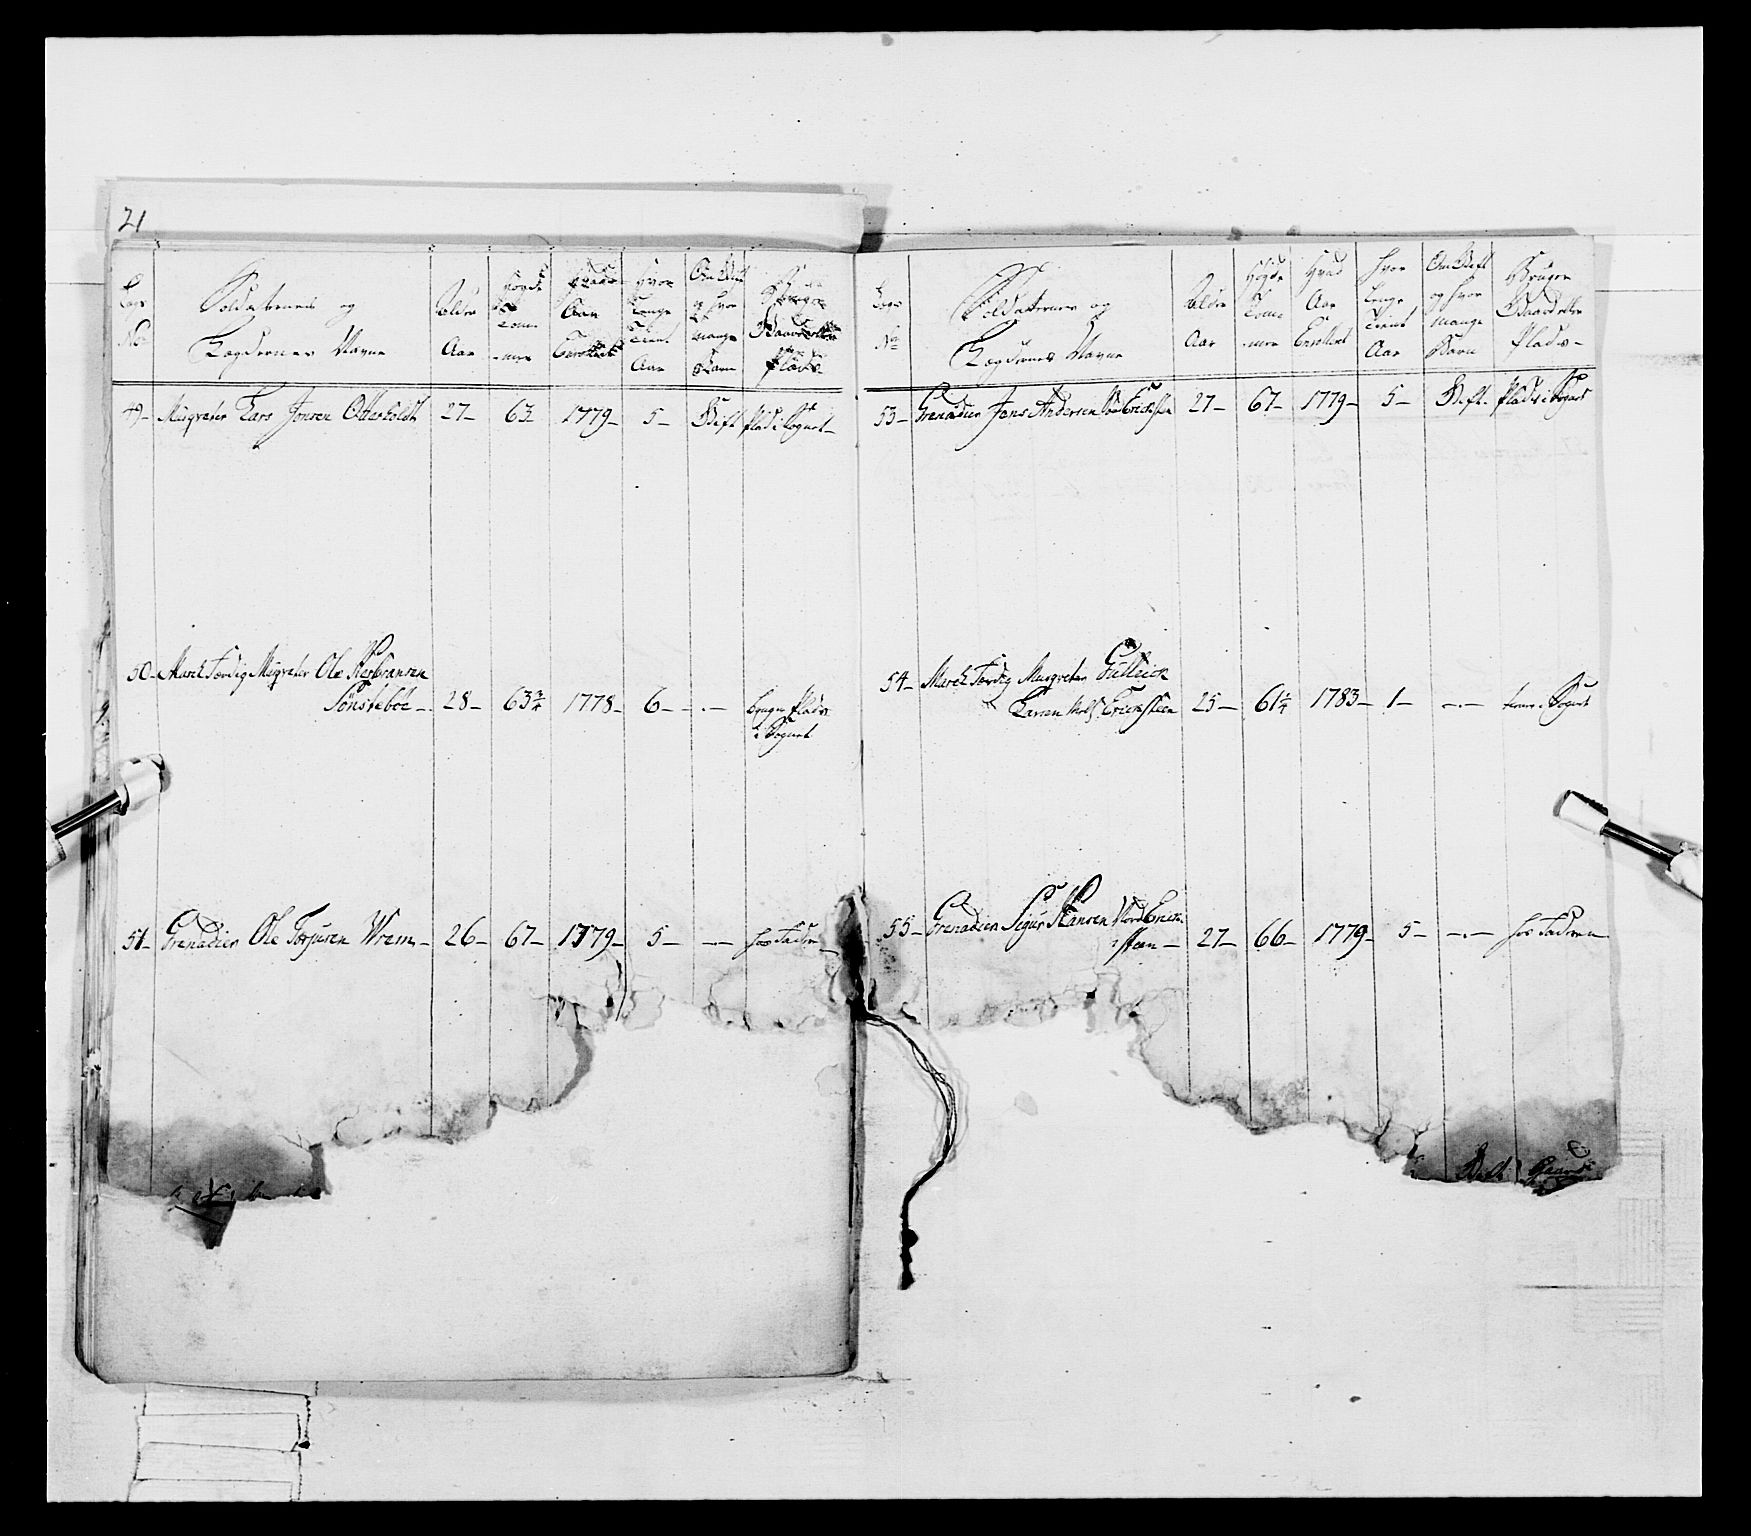 21
Lægs No Soldaternes og Lægdernes Navne Alder Aar Høyde Tom- mer Hvad Aar Enrollert Hvor Lenge Tient Aar Om Gift og hvor mange Barn Bruger Gaard eller Plads
49- Musqveter Lars Jonsen Otterholdt 27- 63 1779- 5- Gift Plads i Sognet-
50- March Færdig Musqveter Ole Herbransen
Sönsteböe - 28- 63¾ 1778- 6- -.- bruger Plads
i Sognet
51- Grenadeer Ole Torjusen Wrem- 26- 67- 1779- 5- -- hos Fadren-
Lægs No Soldaternes og Lægdernes Navne Alder Aar Høyde Tom- mer Hvad Aar Enrollert Hvor Lenge Tient Aar Om Gift og hvor mange Barn Bruger Gaard eller Plads-
53- Grenadeer Jens Andersen Erichsteen 27- 67- 1779- 5- Gift- Plads i Sognet
54- March Færdig Musqveter Gulleich
Larsen Erichsteen 25- 61¼ 1783- 1- -.- i Sognet
55- Grenadeer Sigur Hansen Nord Erich-
steen- 27- 66- 1779- 5- -.- hos Fadren
Gift Gaard